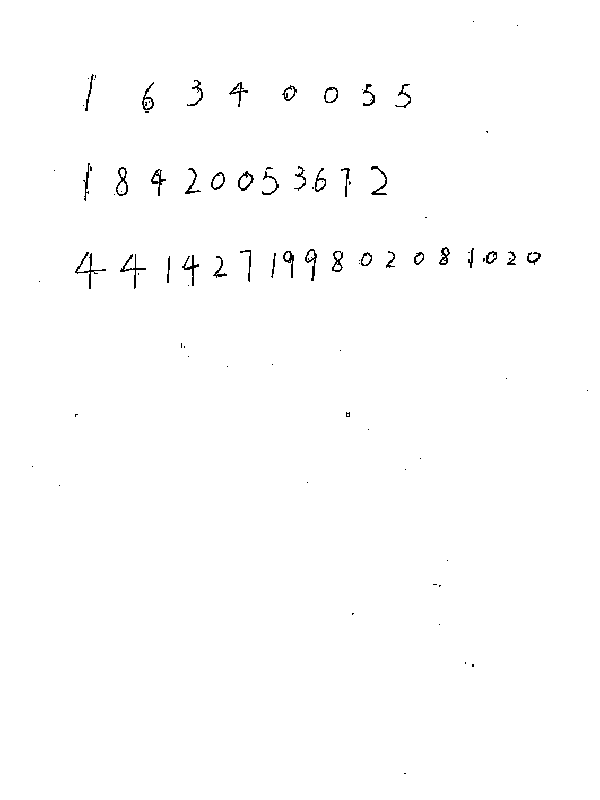 1 6 3 4 0 0 5 5
1 8 4 2 0 0 5 3 6 7 2
4 4 1 4 2 7 1 9 9 8 0 2 0 8 1 0 2 0